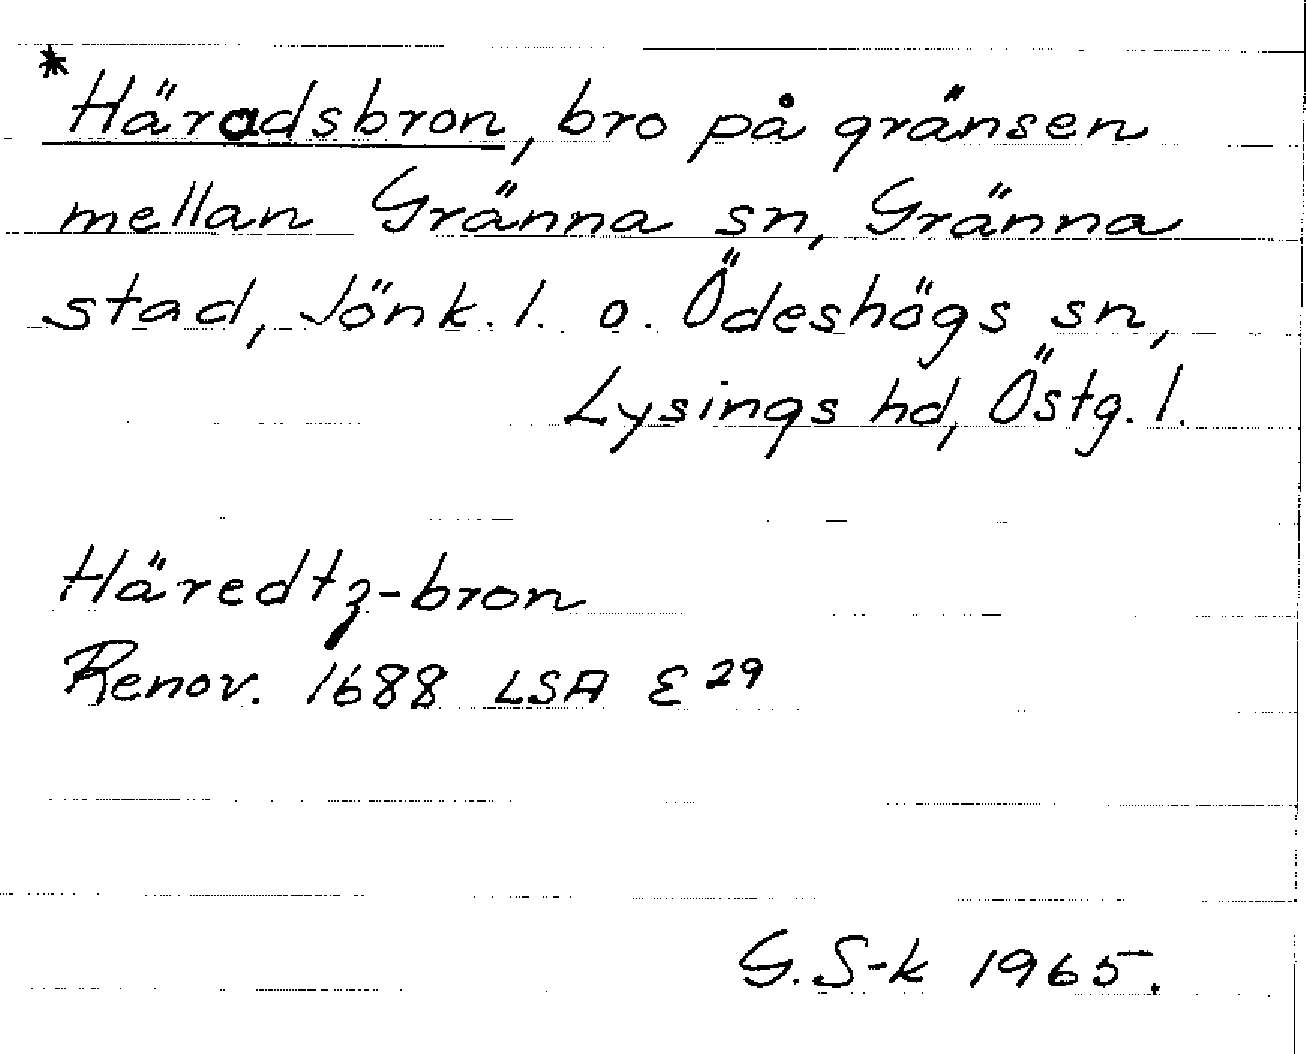 *Häradsbron, bro på gränsen
mellan Gränna sn, Gränna
stad, Jönk. l. o. Ödeshögs sn,
Lysings hd, Östg. l.
Häredtz-bron
Renov. 1688 LSA E 29
G. S-k 1965.